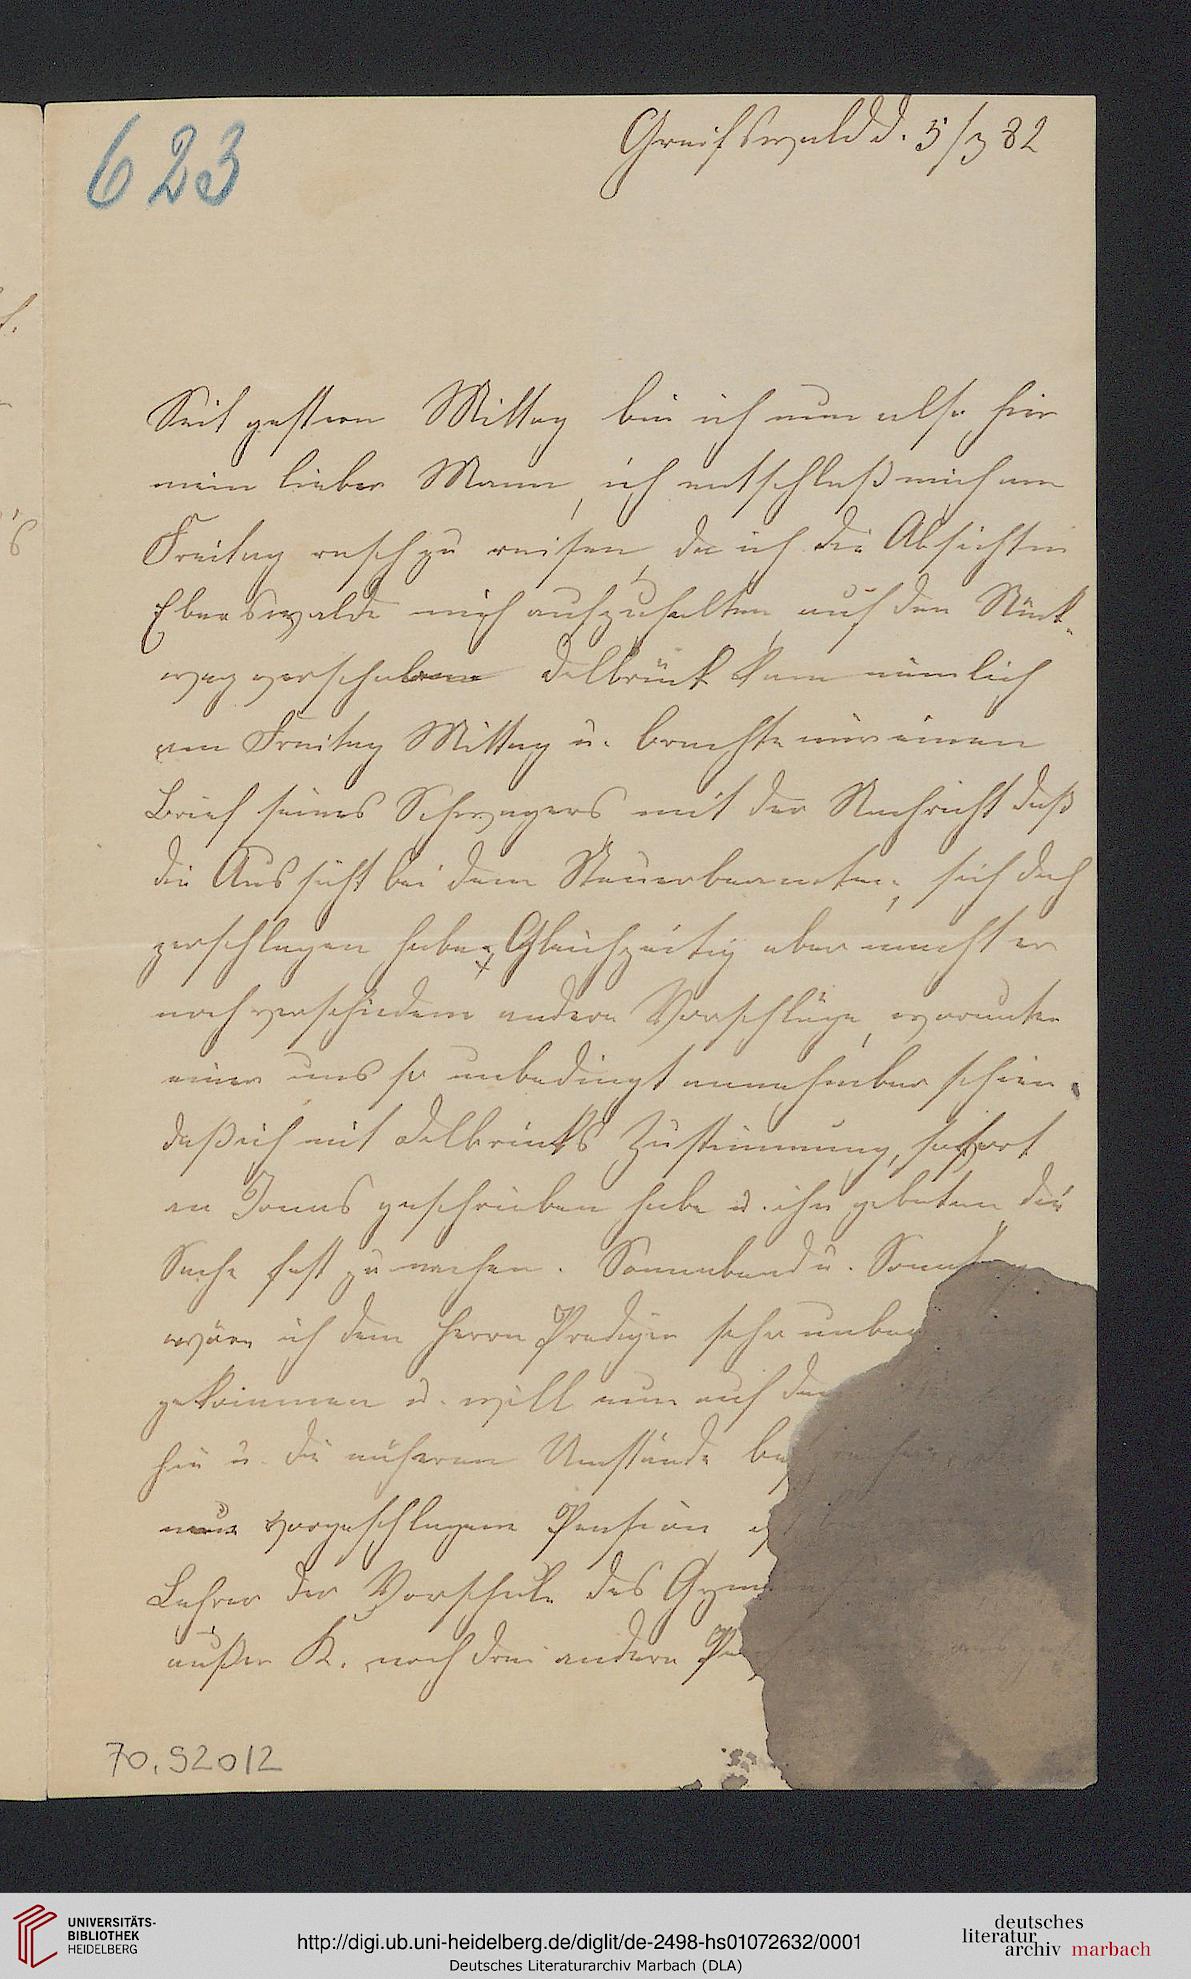 623
Greifswald d. 5/3 82
Seit gestern Mittag bin ich nun also hier
mein lieber Mann, ich entschloß mich am
Freitag rasch zu reisen, da ich die Absichten
Eberswalde mich aufzuhalten, auf den Rück-
weg verschoben. Delbrück kam nämlich
am Freitag Mittag u. brachte mir einen
Brief seines Schwagers mit der Nachricht daß
die Aussicht bei dem Steuerbeamten, sich doch
zerschlagen habe. Gleichzeitig aber macht er
noch verschiedene andere Vorschläge, worunter
einer uns so unbedingt annehmbar schien,
daß ich mit Delbrücks Zustimmung, sofort
an Jonas geschrieben habe u. ihn gebeten die
Sache fest zu machen. Sonnabend u. Sonntag
wäre ich dem Herrn Prediger sehr unbe
gekommen u. will nun auf
hin u. die näheren Umstände
neue vorgeschlagene Pension,
Lehrer der Vorschule des Gym
außer K. noch drei andere
70.92012
UNIVERSITÄTS-
BIBLIOTHEK
HEIDELBERG
http://digi.ub.uni-heidelberg.de/diglit/de-2498-hs01072632/0001
Deutsches Literaturarchiv Marbach (DLA)
deutsches
literatur
archiv marbach